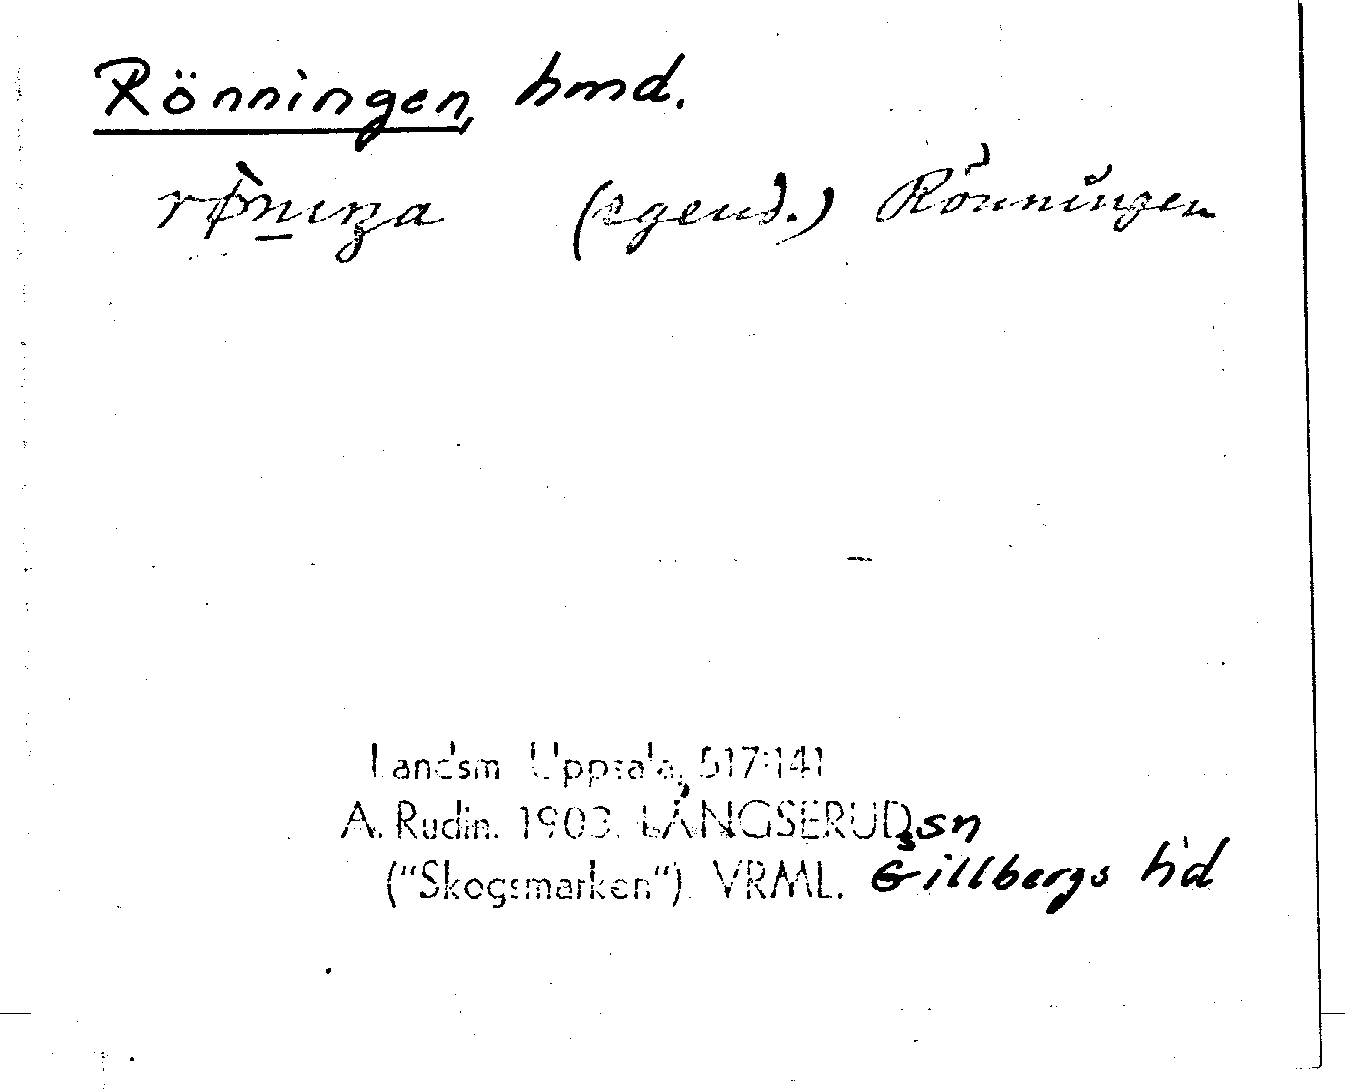 Rönningen, hmd.
rø̀nıŋa (egend.) Rönningen
Landsm Uppsala, 517:141
A. Rudin. 1903. LÅNGSERUDs sn
("Skogsmarken"). VRML. Gillbergs hd